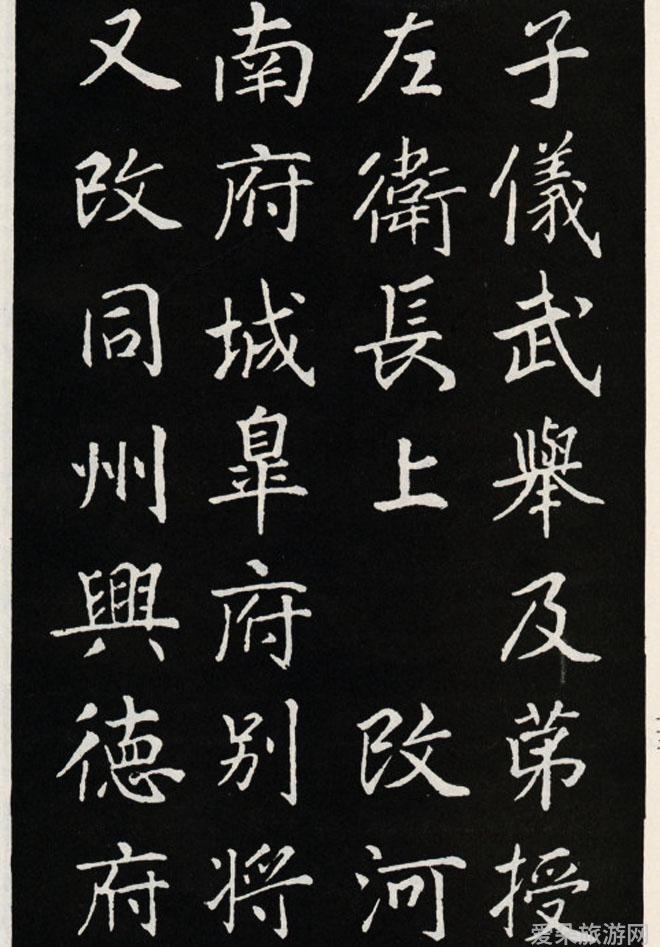 子儀武舉及苐授
左衛長上 改河
南府城皐府别将
又改同州興徳府
爱果旅游网